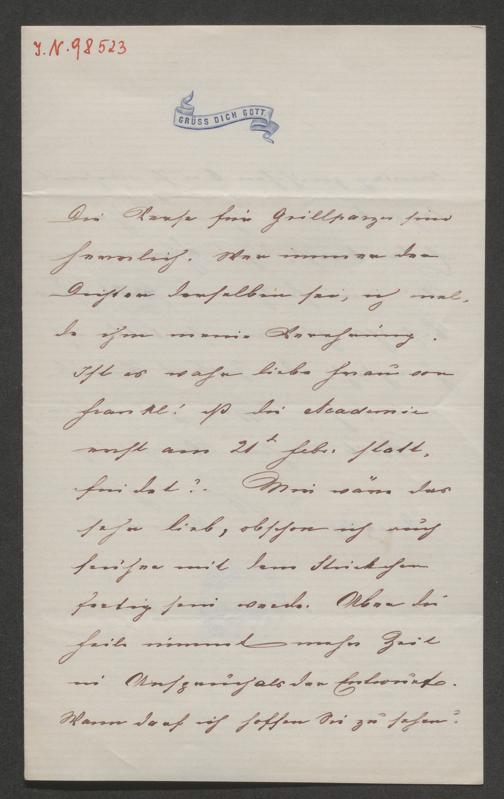 J.N.98523
GRÜSS DICH GOTT
Die Verse für Grillparzer sind
herrlich. Wer immer der
Dichter derselben sei, ich mel-
de ihm meine Verehrung.
Ist es wahr liebe Frau von
Frankl! daß die Academie
erst am 21t Febr. statt-
findet? Mir wäre das
sehr lieb, obschon ich auch
früher mit dem Stückchen
fertig sein werde. Aber die
Feile nimmt mehr Zeit
in Anspruch als der Entwurf.
Wann darf ich hoffen Sie zu sehen?